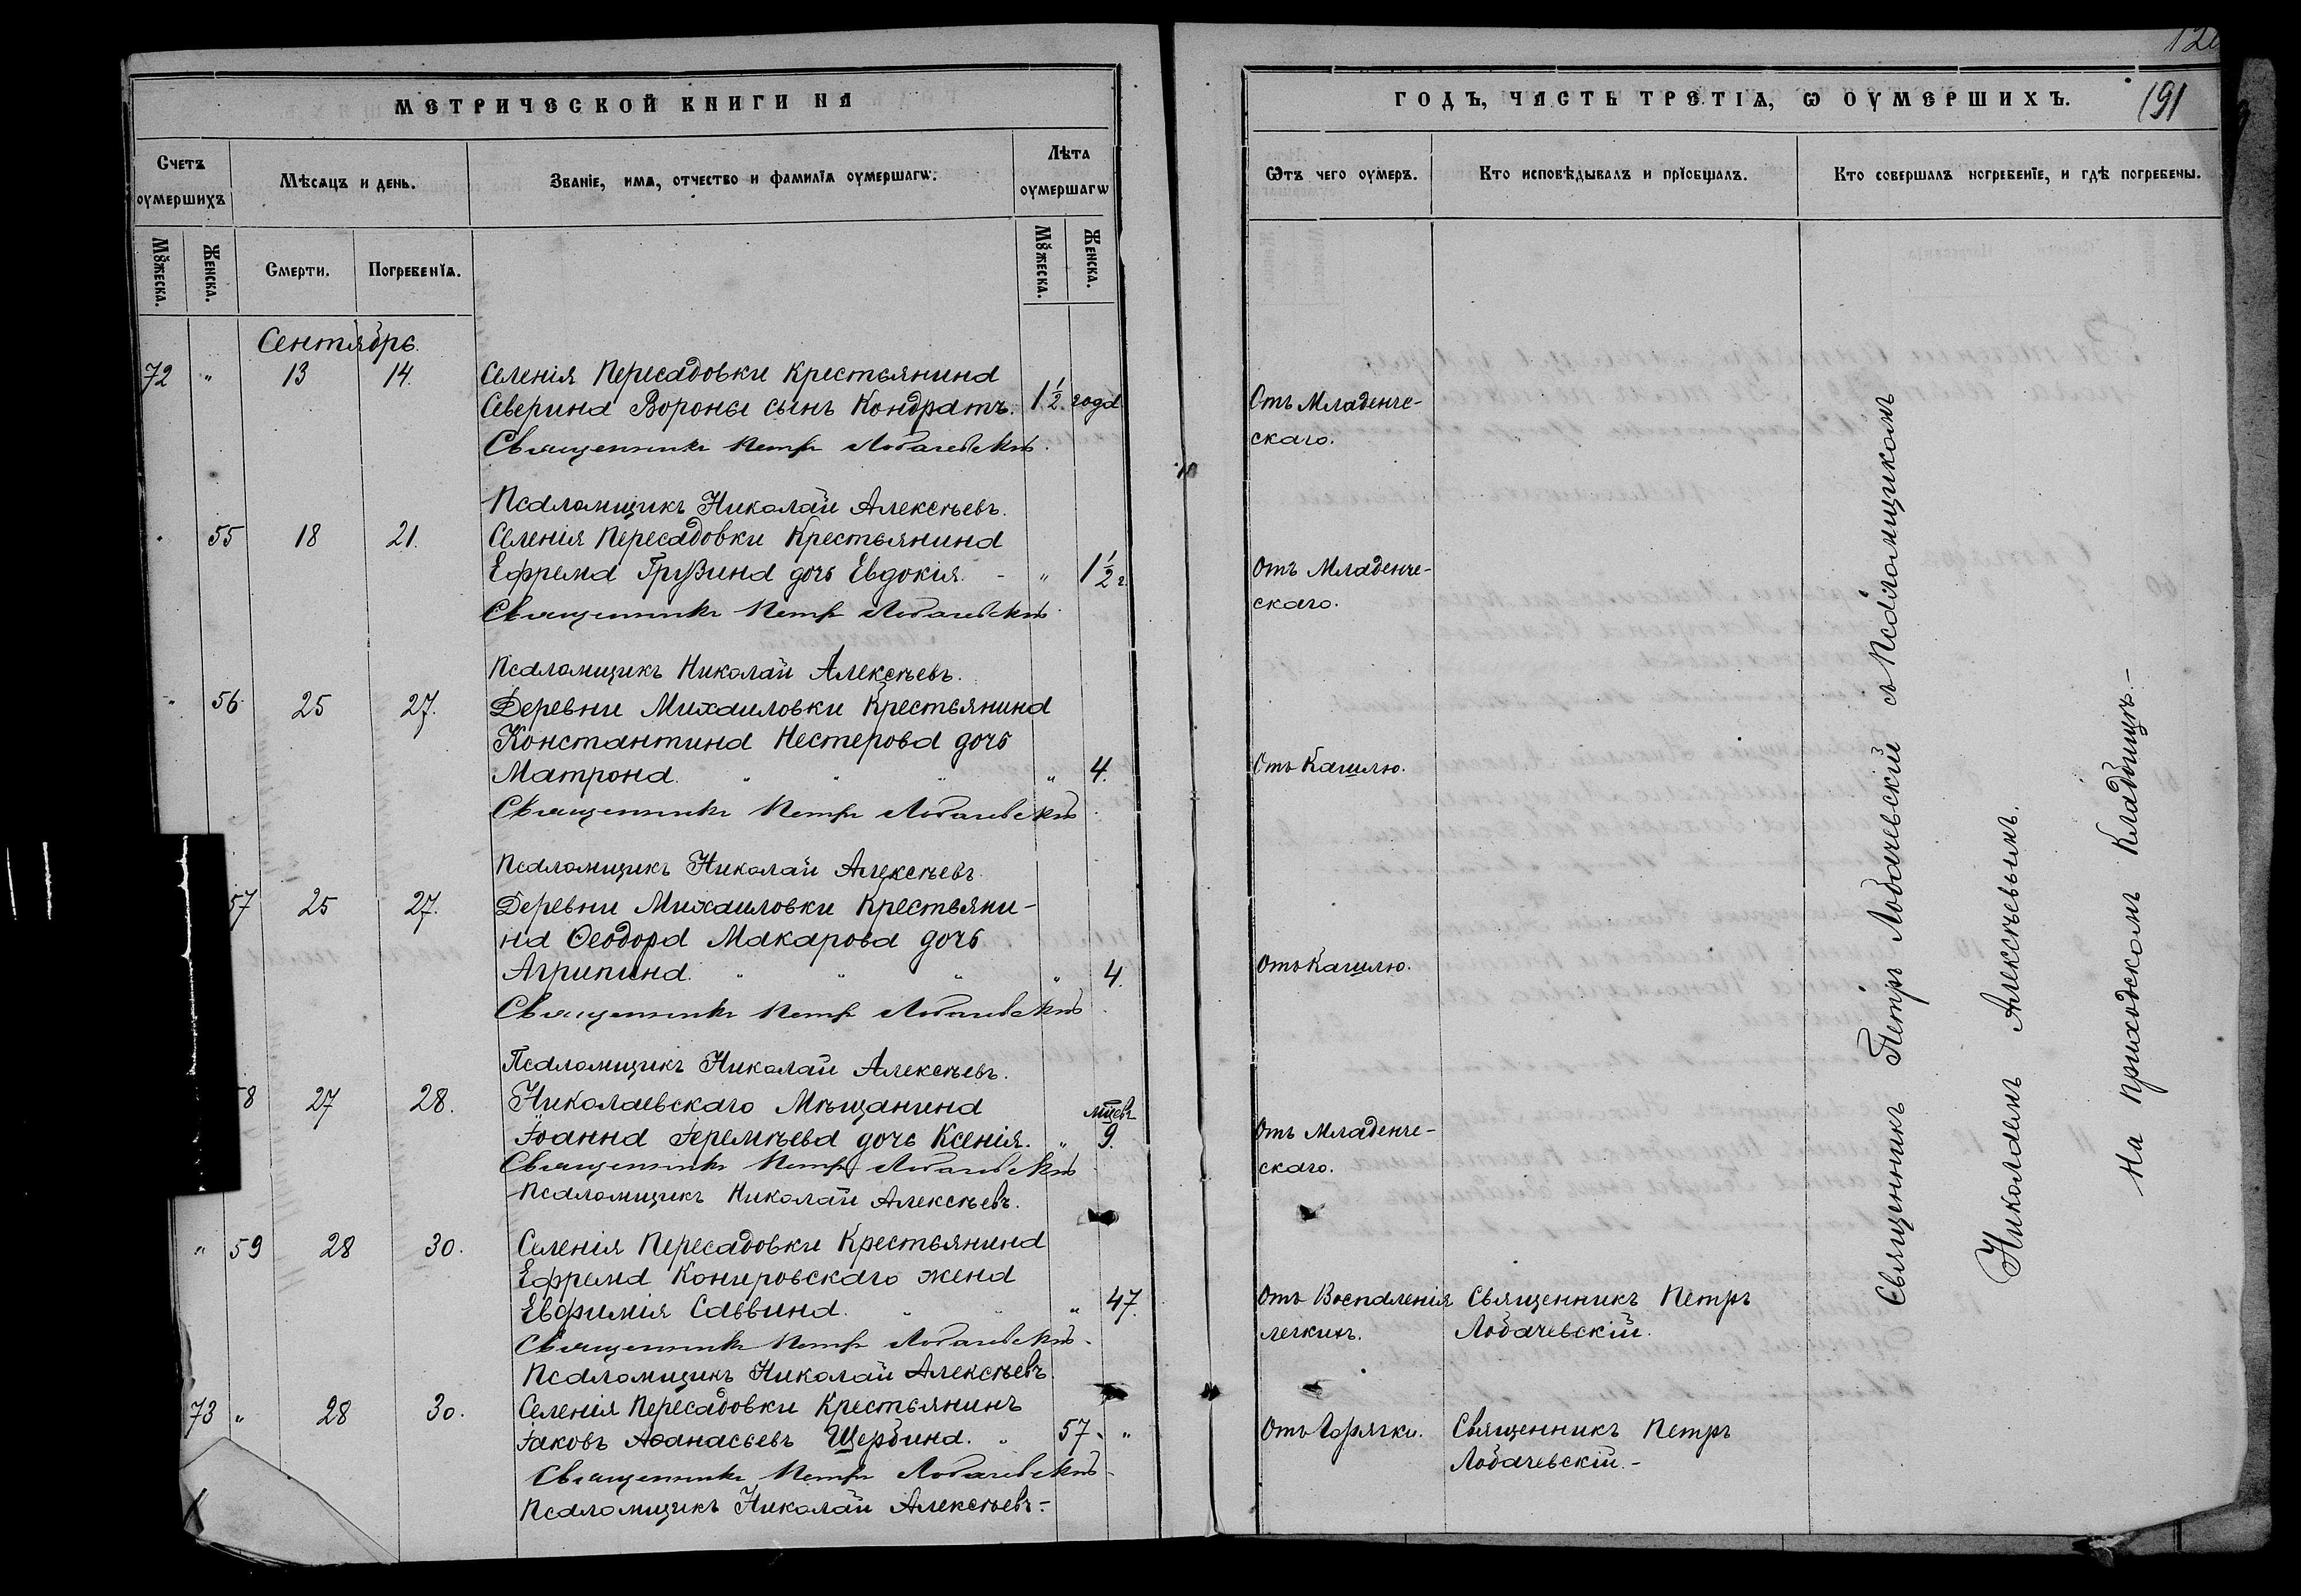 МЕТРИЧЕСКОЙ КНИГИ НА
Счетъ оумершихъ
Мѣсяцъ и день.
Званіе, имя, отчество и фамилія оумершагѡ.
Лѣта оумершагѡ
Мꙋжеска.
Женска.
Смерти.
Погребенїѧ.
Мꙋжеска.
Женска.
Сентябрь.
72 " 13 14. Селенія Пересадовки Крестьянина
Северина Вороны сынъ Кондратъ. 1½ года
Священникъ Петръ Лобачевскій.
Псаломщикъ Николай Алексѣевъ.
" 55 18 21. Селенія Пересадовки Крестьянина
Ефрема Грузина дочь Евдокія. - " 1½ г.
Священникъ Петръ Лобачевскій.
Псаломщикъ Николай Алексѣевъ.
" 56. 25 27. Деревни Михаиловки Крестьянина
Константина Нестерова дочь
Матрона. " " " " 4.
Священникъ Петръ Лобачевскій.
Псаломщикъ Николай Алексѣевъ.
57 25 27. Деревни Михаиловки Крестьяни-
на Ѳеодора Макарова дочь
Агрипина. " " " " 4.
Священникъ Петръ Лобачевскій.
Псаломщикъ Николай Алексѣевъ.
8 27 28. Николаевскаго Мѣщанина
Іоанна Іеремѣева дочь Ксенія. " мцевъ 9.
Священникъ Петръ Лобачевскій
Псаломщикъ Николай Алексѣевъ.
" 59 28 30. Селенія Пересадовки Крестьянина
Ефрема Концровскаго жена
Евфимія Саввина. " " " 47.
Священникъ Петръ Лобачевскій.
Псаломщикъ Николай Алексѣевъ.
73 " 28 30. Селенія Пересадовки Крестьянинъ
Іаковъ Аѳанасьевъ Щербина. " 57. "
Священникъ Петръ Лобачевскій.
Псаломщикъ Николай Алексѣевъ.-
ГОДЪ, ЧАСТЬ ТРЕТІѦ, Ѡ ОУМЕРШИХЪ.
191
Ѿтъ чего оумеръ.
Кто исповѣдывалъ и прїобщалъ.
Кто совершалъ погребенїе, и гдѣ погребены.
Отъ Младенче-
скаго.
Отъ Младенче-
скаго.
Отъ Кашлю.
Отъ Кашлю.
Отъ Младенче-
скаго.
Отъ Воспаленія Священникъ Петръ
легкихъ. Лобачевскій.
Отъ Горячки. Священникъ Петръ
Лобачевскій.-
Священникъ Петръ Лобачевскій съ Псаломщикомъ
Николаемъ Алексѣевымъ.
На приходскомъ Кладбищѣ.-